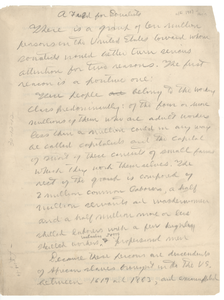 A Field for Socialists
There is a group of ten million
persons in the United States toward whom
Socialists would better turn serious
attention for two reasons. The first
reason is a positive one:
These people belong to the working
class predominantly: of the four or more
millions of them who are adult workers
less than a million could in any way
be called capitalists and the capital
of most of these consists of small farms
which they work themselves. The
rest of the group is composed of
2 million common laborers, a half
million servants and washerwomen
and a half million more or less
skilled laborers with a few
skilled workers, & professional men.
Because these persons are descendants
of African slaves brought to the U.S.
between 1619 and 1808, and